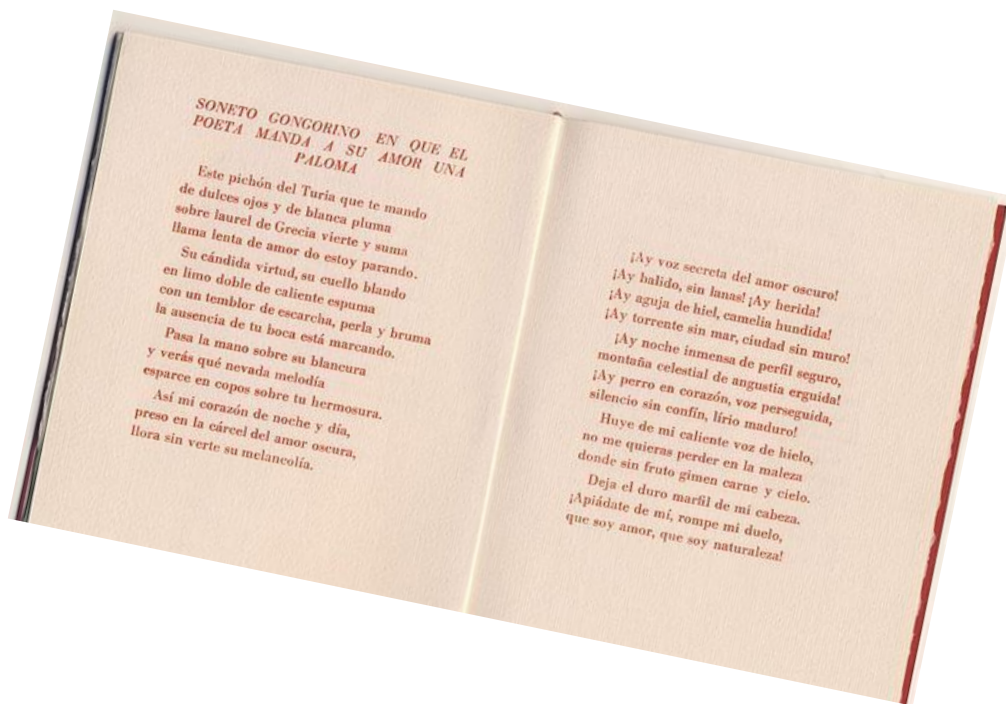 SONETO GONGORINO EN QUE EL
POETA MANDA A SU AMOR UNA
PALOMA
Este pichón del Turia que te mando
de dulces ojos y de blanca pluma
sobre laurel de Grecia vierte y suma
llama lenta de amor do estoy parando.
Su cándida virtud, su cuello blando
en limo doble de caliente espuma
con un temblor de escarcha, perla y bruma
la ausencia de tu boca está marcando.
Pasa la mano sobre su blancura
y verás qué nevada melodía
esparce en copos sobre tu hermosura.
Así mi corazón de noche y día,
preso en la cárcel del amor oscura,
llora sin verte su melancolía.
¡Ay voz secreta del amor oscuro!
¡Ay balido, sin lanas! ¡Ay herida!
¡Ay aguja de hiel, camelia hundida!
¡Ay torrente sin mar, ciudad sin muro!
¡Ay noche inmensa de perfil seguro,
montaña celestial de angustia erguida!
¡Ay perro en corazón, voz perseguida,
silencio sin confín, lirio maduro!
Huye de mi caliente voz de hielo,
no me quieras perder en la maleza
donde sin fruto gimen carne y cielo.
Deja el duro marfil de mi cabeza.
¡Apiádate de mí, rompe mi duelo,
que soy amor, que soy naturaleza!